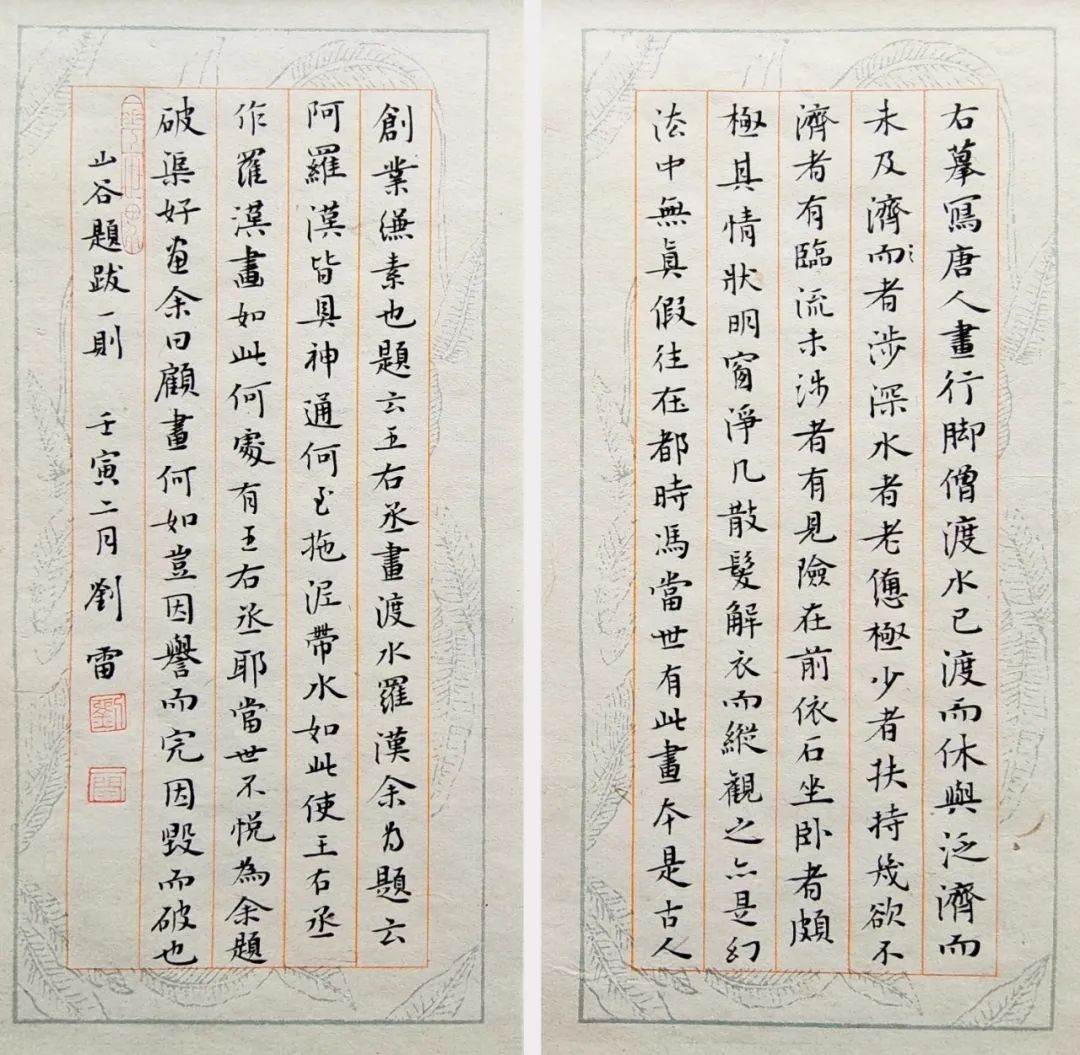 右摹寫唐人畫行脚僧渡水已渡而休與泛濟而
未及濟而者涉深水者老憊極少者扶持幾欲不
濟者有臨流未涉者有見險在前依石坐卧者頗
極其情狀明窗淨几散髮解衣而縱觀之亦是幻
法中無真假往在都時馮當世有此畫本是古人
創業縑素也題云王右丞畫渡水羅漢余為題云
阿羅漢皆具神通何至拖泥帶水如此使王右丞
作羅漢畫如此何處有王右丞耶當世不悅為余題
破渠好畫余曰顧畫何如豈因譽而完因毀而破也
山谷題跋一則 壬寅二月 劉雷
劉